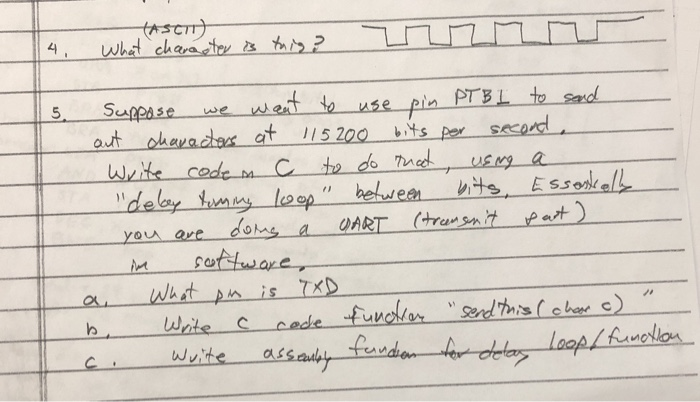 (ASCII)
4. What character is this?
5. Suppose we want to use pin PTB1 to send
out characters at 115200 bits per second.
Write code in C to do that, using a
"delay timing loop" between bits. Essentially
you are doing a UART (transmit part)
in software.
a. What pin is TXD
b. Write C code function "sendthis(char c)"
c. Write assembly function for delay loop/function